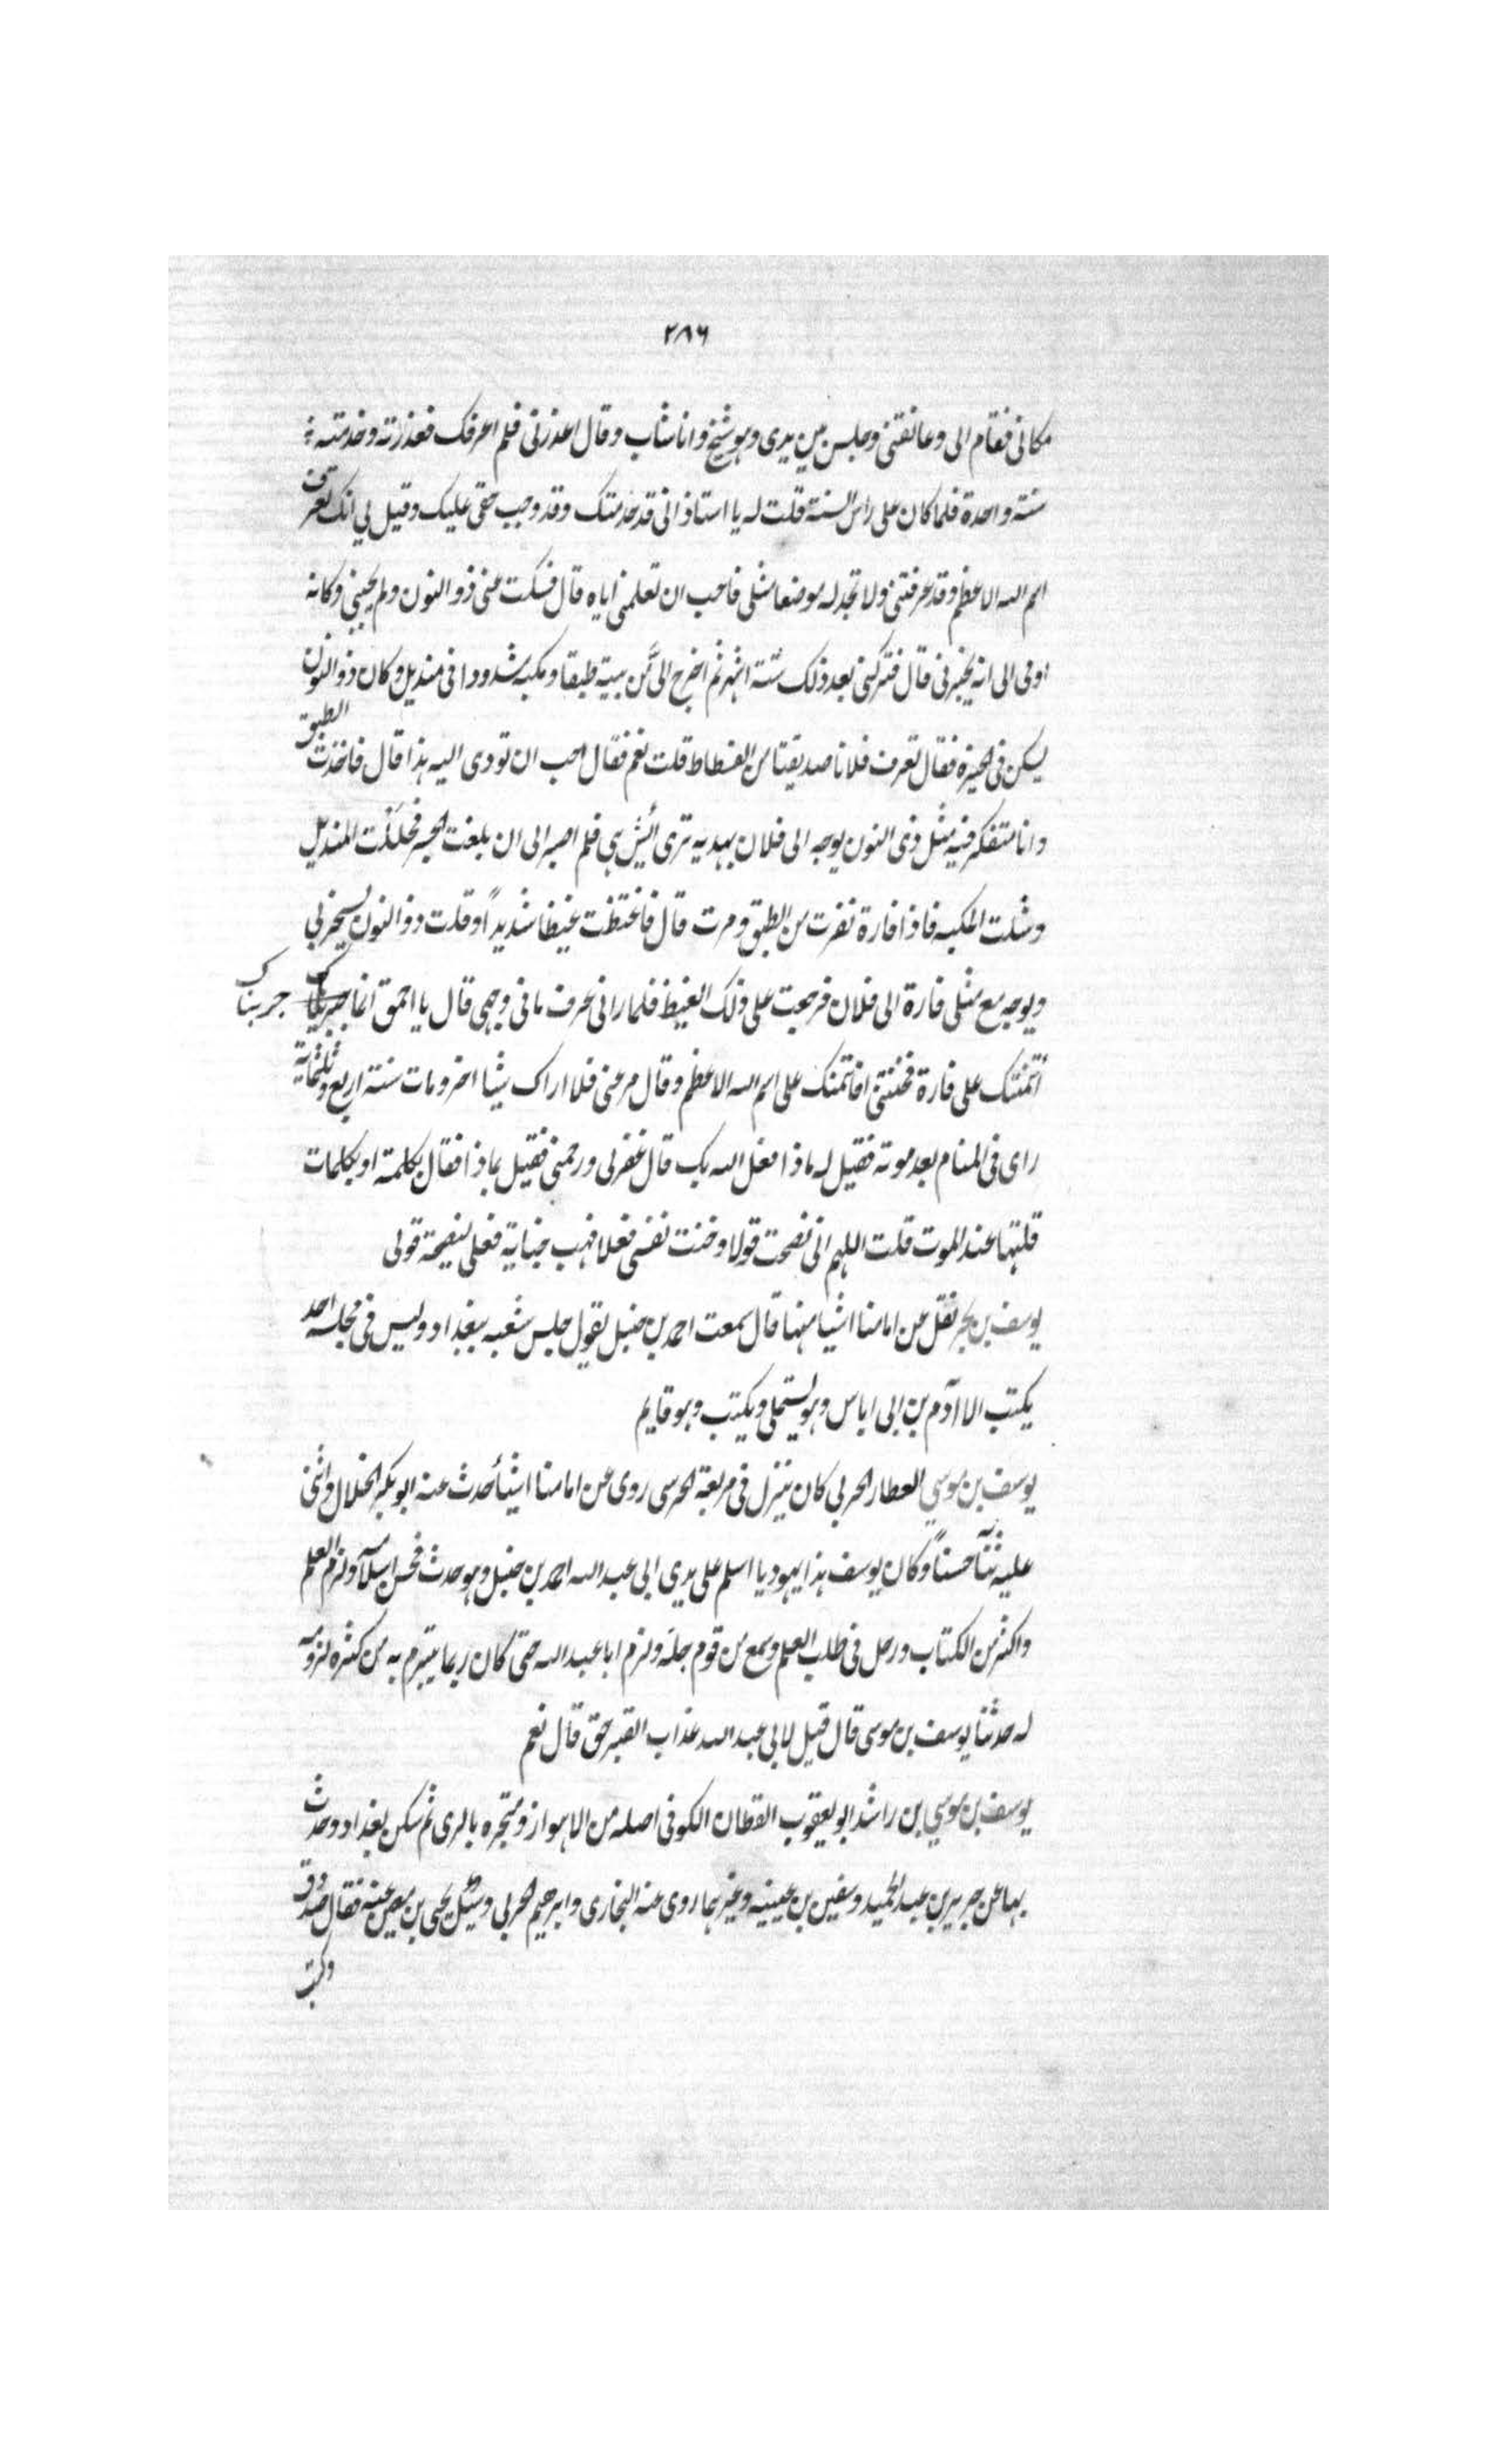 ٢٨٦
مكانى فقام الى وعانقنى وجلس بين يدى وهو شيخ وانا شاب وقال اعذرنى فلم اعرفك فعذرته وخدمته
سنة واحدة فلما كان على راس السنة قلت له يا استاذ انى قد خدمتك وقد وجب حقى عليك وقيل لي انك تعرف
اسم الله الاعظم وقد عرفتنى ولا تجد له موضعا مثلى فاحب ان تعلمنى اياه قال فسكت عنى ذو النون ولم يجبنى وكانه
اومى الى انه يخبرنى قال فتركنى بعد ذلك ستة اشهر ثم اخرج الىَّ من بيته طبقا ومكبه مشدودا فى منديل وكان ذو النون
يسكن فى الجيزه فقال تعرف فلانا صديقنا من الفسطاط قلت نعم فقال احب ان تودى اليه هذا قال فاخذت الطبق
وانا متفكر فيه مثل ذى النون يوجه الى فلان بهديه ترى أيش هي فلم اصبر الى ان بلغت الجسر فحللت المنديل
وشلت المكبه فاذا فارة نفرت من الطبق ومرت قال فاغتظت غيظا شديداً وقلت ذو النون يسخر بي
ويوجه مع مثلى فارة الى فلان فرجعت على ذلك الغيظ فلما رانى عرف ما فى وجهى قال يا احمق انما جربناك
جربناك
أتمنتك على فارة فخنتنى افاتمنك على اسم الله الاعظم وقال مر عنى فلا اراك شيئا اخر ومات سنة اربع وثلثماية
راى فى المنام بعد موته فقيل له ماذا فعل الله بك قال غفر لى ورحمنى فقيل بماذا فقال بكلمة او بكلمات
قلتها عند الموت قلت اللهم انى نصحت قولا وخنت نفسى فعلا فهب خيانة فعلى لنصيحة قولى
يوسف بن بحر نقل عن امامنا اشيا منها قال سمعت احمد بن حنبل يقول جلس شعبه ببغداد وليس فى مجلسه احد
يكتب الا آدم بن ابى اياس وهو يستملى ويكتب وهو قايم
يوسف بن موسي العطار الحربى كان ينزل فى مربعة الحرسى روى عن امامنا اشيأ حدث عنه ابو بكر الخلال واثنى
عليه ثنآ حسناً وكان يوسف هذا يهوديا اسلم على يدي ابى عبد الله احمد بن حنبل وهو حدث فحسن اسلامه ولزم العلم
واكثر من الكتاب ورحل فى طلب العلم وسمع من قوم جله ولزم ابا عبد الله حتى كان ربما يتبرم به من كثره لزومه
له حدثنا يوسف بن موسى قال قيل لابى عبد الله عذاب القبر حق قال نعم
يوسف بن موسي بن راشد ابو يعقوب القطان الكوفى اصله من الاهواز ومتجره بالرى ثم سكن بغداد وحدث
بها عن جرير بن عبد الحميد وسفين بن عيينه وغيرهما روى عنه البخارى وابرهيم الحربى وسئل يحيى بن معين عنه فقال صدوق
وكتب